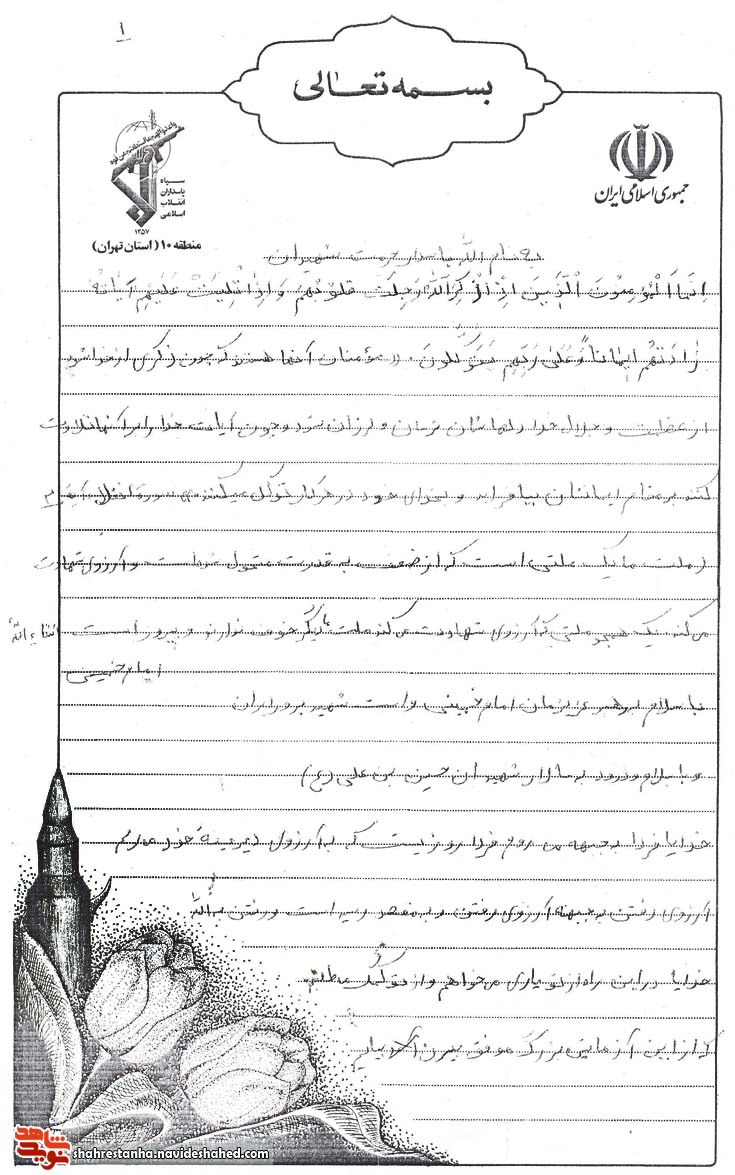 ۱
بسمه تعالی
جمهوری اسلامی ایران
سپاه
پاسداران
انقلاب
اسلامی
۱۳۵۷
منطقه ۱۰ (استان تهران)
به نام الله پاسدار حرمت شهیدان
اِنَّمَا اَلْمُؤمِنُونَ اَلَّذینَ اِذٰا ذُکِرَ اَللهُ وَجِلَتْ قُلُوبُهُم وَ اِذٰا تُلِیَتْ عَلَیْهِم آیٰاتُهُ
زٰادَتهُم اِیمٰاناً وَ عَلیٰ رَبِّهِم یَتَوَکَّلُونَ. « مؤمنان آنها هستند که چون ذکری از خدا شود
از عظمت و جلال خدا دلهاشان ترسان و لرزان شود و چون آیات خدا را بر آنها تلاوت
کنند بر مقام ایمانشان بیافزاید و بخدای خود در هر کار توکل میکنند سوره انفال آیه ۲
(ملت ما یک ملتی است که از ضعف به قدرت متحول شده است و آرزوی شهادت
می کند یک همچو ملتی که آرزوی شهادت می کند ملت دیگر خوف ندارد و پیروز است انشاءالله
امام خمینی
با سلام بر رهبر عزیزمان امام خمینی و امت شهید پرور ایران
و با سلام و درود به سالار شهیدان حسین بن علی (ع)
خدایا فردا به جبهه می روم فردا روزیست که به آرزوی دیرینهٔ خود میرسم
آرزوی رفتن به جبهه آرزوی رفتن و به مقصد رسیدن است و رفتن به الله
خدایا در این راه از تو یاری می خواهم و از تو کمک می طلبم
که از این آزمایش بزرگ موفق بیرون آیم
نوید شاهد
shahrestanha.navideshahed.com